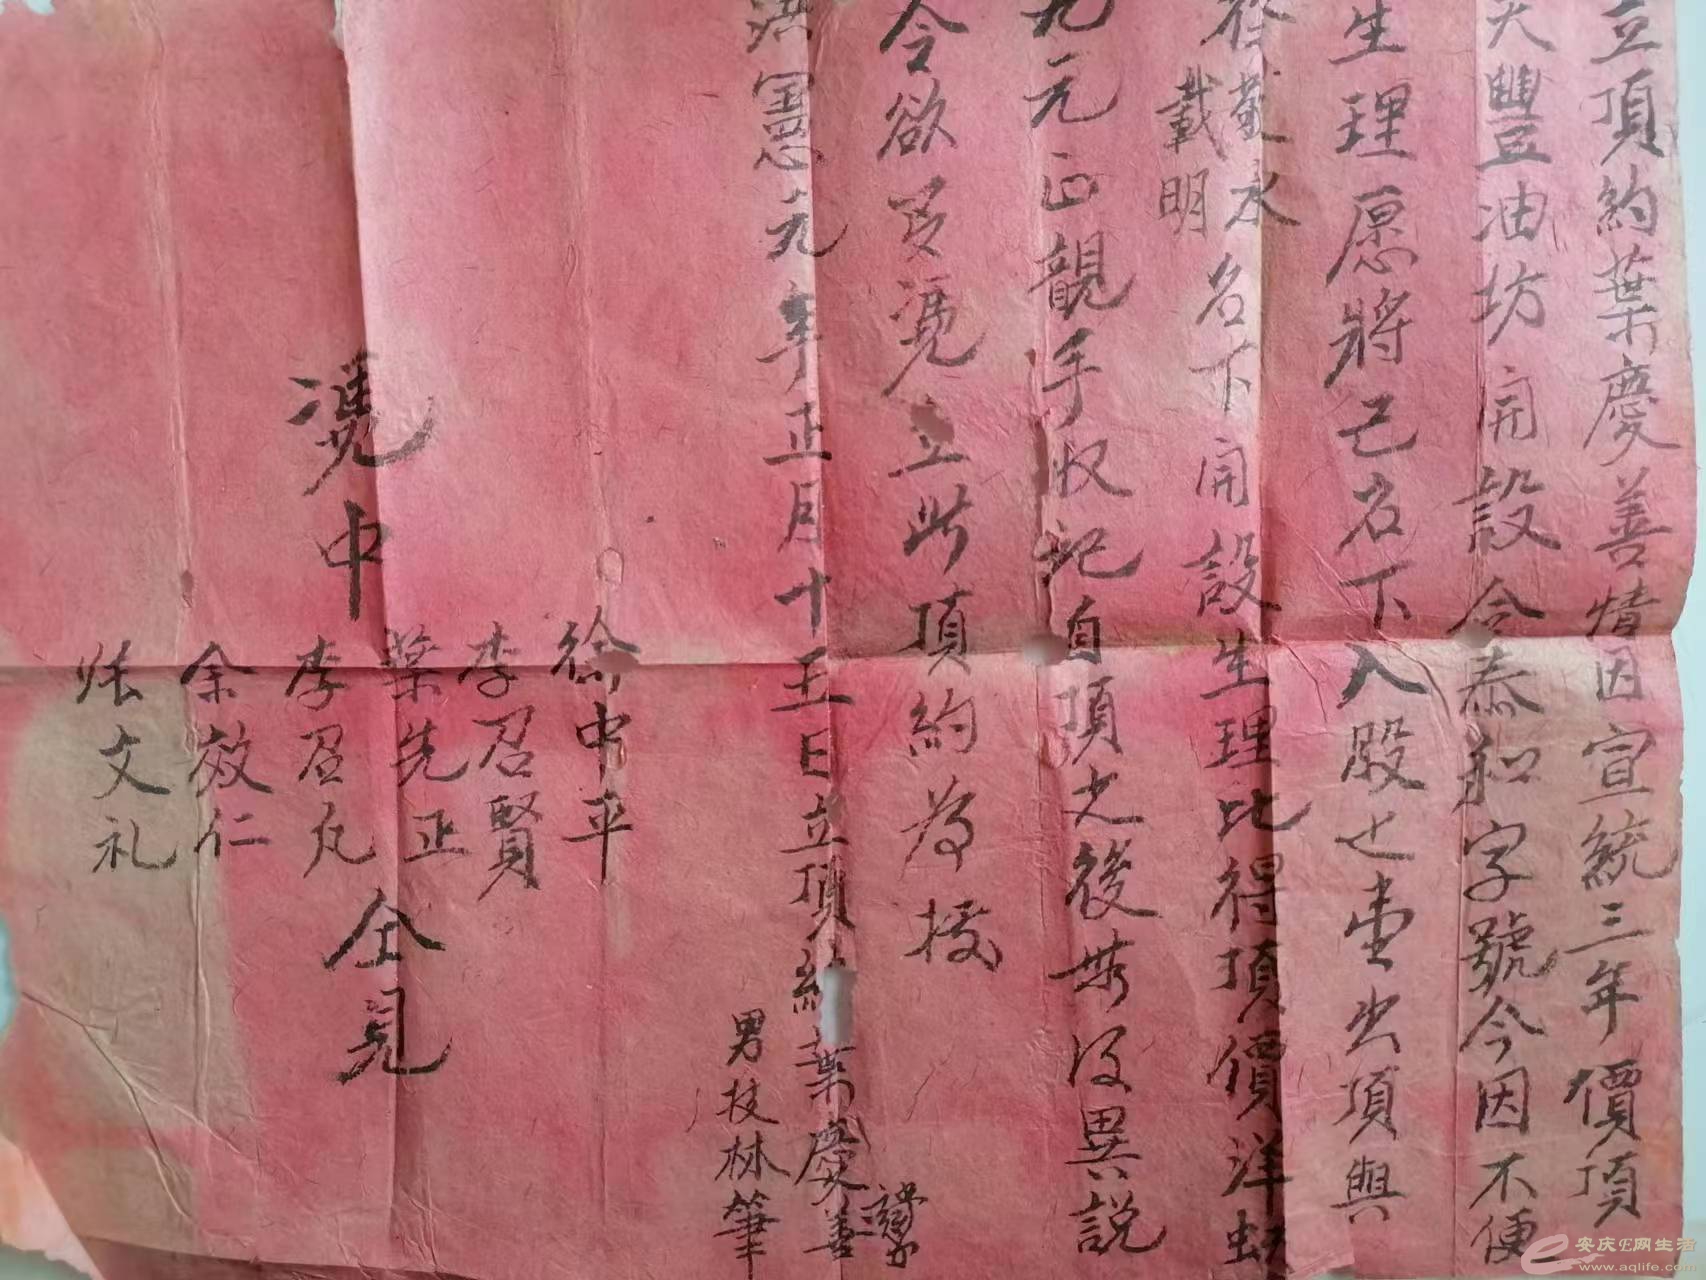 立頂約葉慶善情因宣統三年價頂
天豐油坊開設合泰和字號今因不便
生理愿將己名下入股七壹出頂與
載明
名下開設生理比得頂價洋
九元正親手收訖自頂之後無得異説
今欲有凴立此頂約為據
洪憲元年正月十五日立頂約葉慶善
男枝林筆
徐中平
李召賢
葉先正
李召凡
余效仁
張文礼
凴中
仝見
安庆E网生活
www.aqlife.com